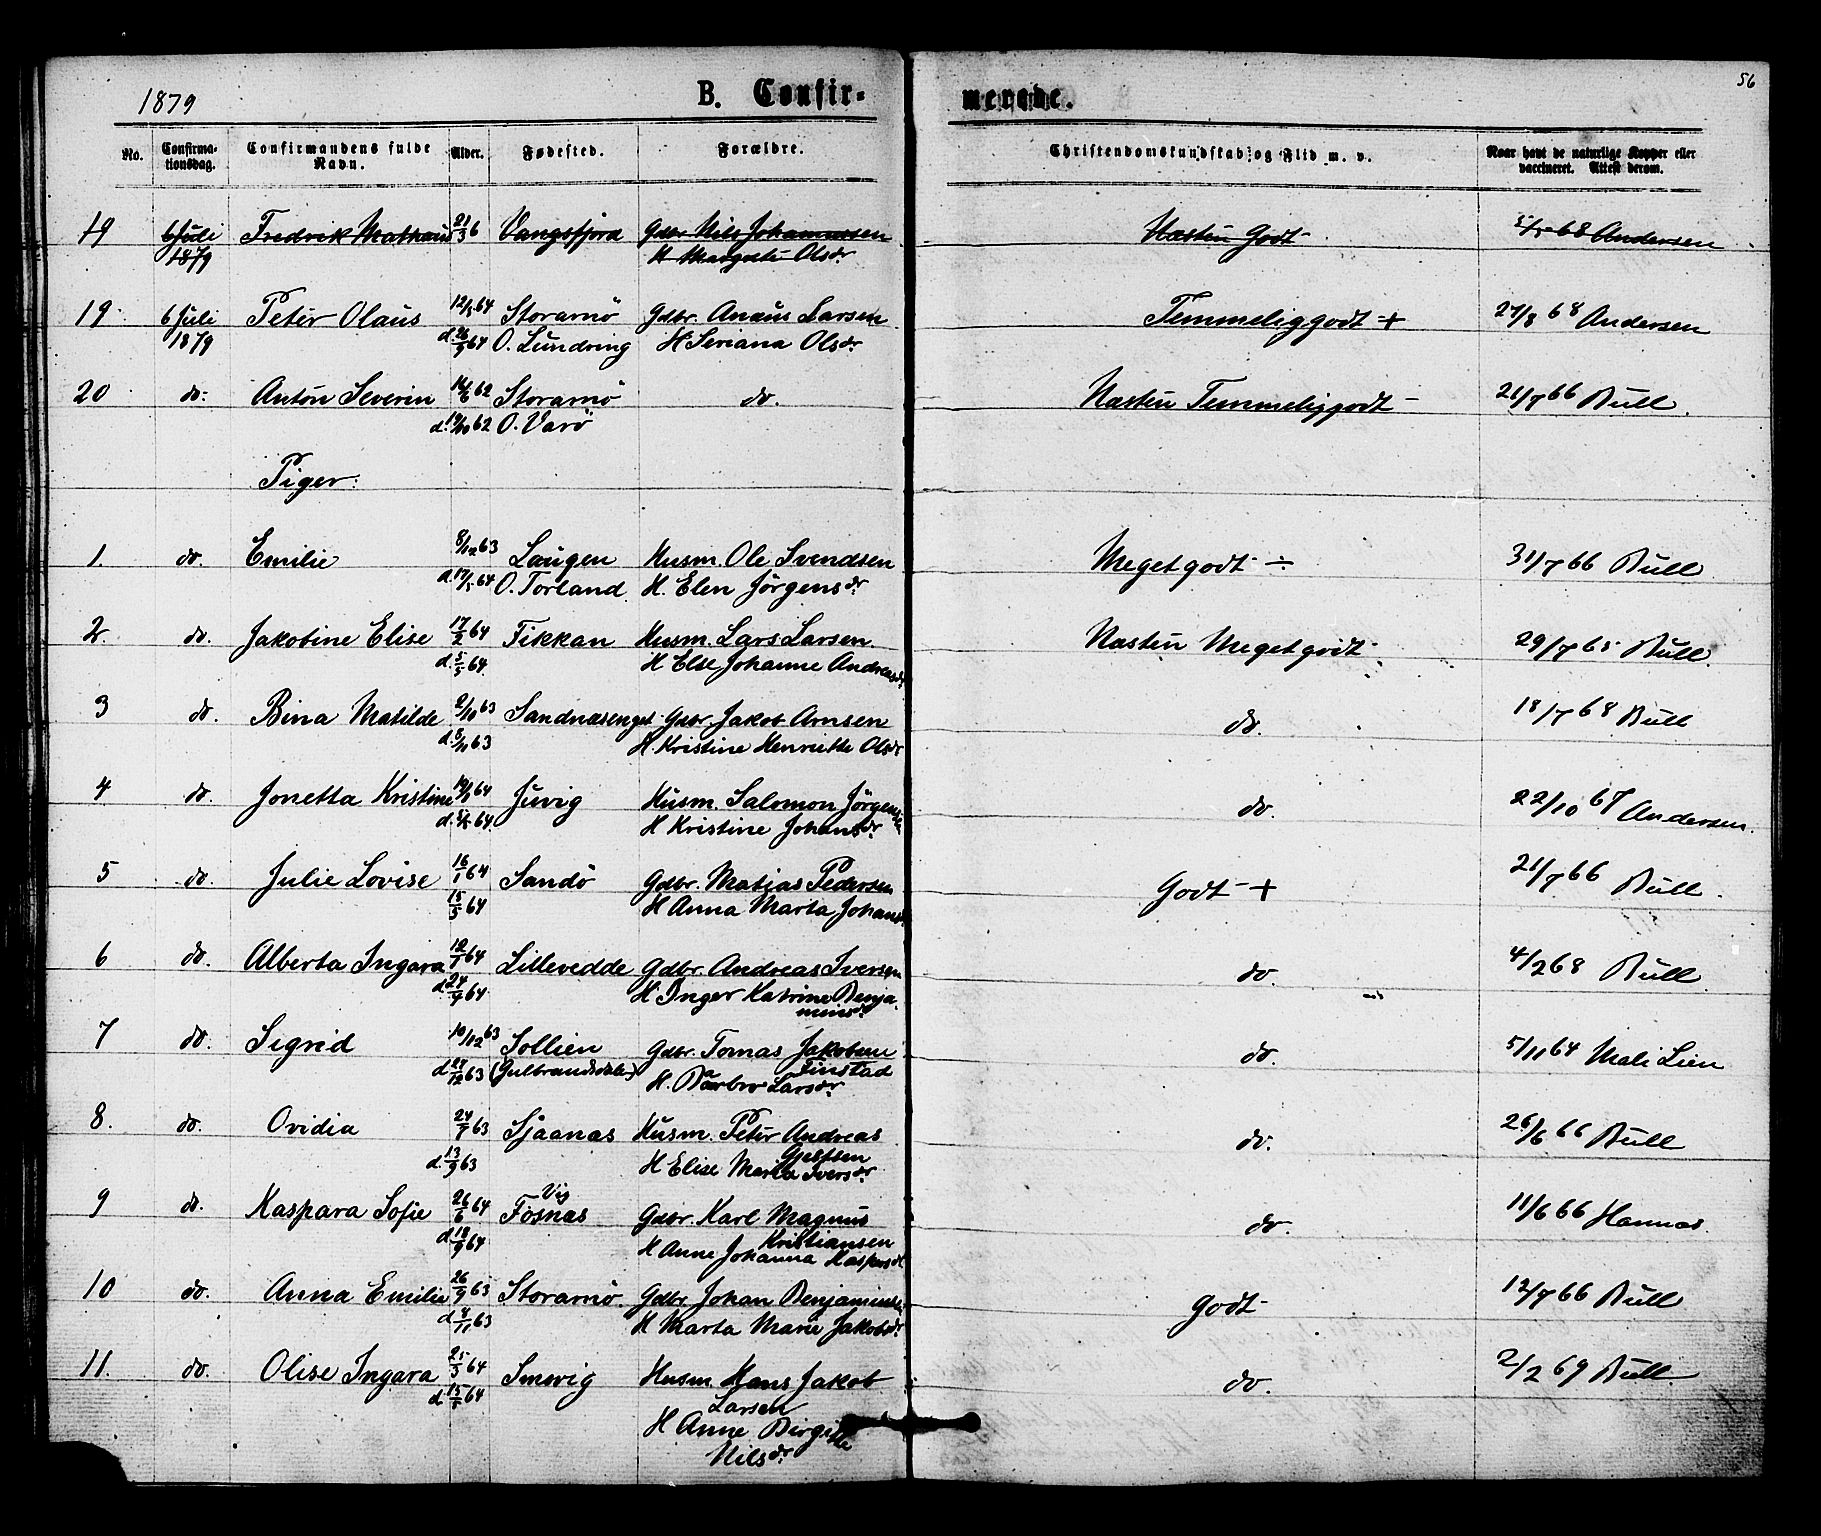 56
1879 B. Confir- merede.
No. Confirma-tionsdag. Confirmandens fulde Navn. Alder. Fødested. Forældre. Christendomskundskab og Flid m. v. Naar havt de naturlige Kopper eller vaccineret. Attest derom.
19 6 Juli Fredrik 21/3 6 Vangsfjord Gdbr. Nils Johannessen Næsten Godt 68 Andersen
1879 H Margrete Olsdr
19 6 Juli Peter Olaus 12/5 64 Storarnö Gdbr. Anæus Larsen Temmeliggodt + 27/8 68 Andersen
1879 d. 26/9 64 O. Lundring H Seriana Olsdr
20 do. Anton Severin 62 Storarnö do. Næsten Temmeliggodt 21/7 66 Bull.
d. 19/10 62 O. Varö
Piger:
1. do. Emilie 8/12 63 Laugen Husm. Ole Svendsen Megetgodt ÷ 31/7 66 Bull
d. 17/1 64 O. Torland. H. Elen Jörgensdr
2. do. Jakobine Elise 17/2 64 Fikkan Husm. Lars Larsen Næsten Megetgodt 29/7 65 Bull.
d. 5/5 64. H Else Johanne Andreasdr
3 do. Bina Matilde 2/10 63 Sandnæsenget Gdbr. Jakob Arnsen do. 18/7 68 Bull
d. 8/11 63 H. Kristine Henriette Olsdr
4 do. Jonetta Kristine 64 Juvig Husm. Salomon Jörgensen do. 22/10 67 Andersen.
d. 64. H Kristine Johansdr
5 do. Julie Lovise 16/1 64 Sandö Gdbr. Matias Pedersen Godt + 21/7 66 Bull.
15/5 64 H Anna Marta Johansdr
6 do. Alberta Ingara 64 Lillevedde Gdbr. Andreas Iversen do. 4/2 68 Bull
d. 24/9 64 H Inger Katrine Benja
minsdr
7 do. Sigrid 10/12 63 Sollien Gdbr. Tomas Jakobsen do. 5/11 64 Mali Lien
d. 27/12 63 (Gulbrandsdalen) Finstad
H. Barbro Larsdr
8. do. Ovidia 24/7 63 Sjaanas Husm. Peter Andreas do. 26/6 66 Bull
d. 13/9 63 Gjeltsen
H Elise Marta Iversdr
9 do. Kaspara Sofie 26/6 64 Vig Gdbr. Karl Magnus do. 11/6 66 Hannas.
d. 18/9 64 Fosnas Kristiansen
H Anne Johanna Kaspersdr
10 do. Anna Emilie 26/9 63 Storarnö. Gdbr. Johan Benjaminsen Godt 12/7 66 Bull
d. 8/11 63 H Marta Marie Jakobsdr
11. do. Olise Ingara 25/3 64 Smevig Husm. Hans Jakob do. 2/2 69 Bull
d. 15/5 64 Larsen
H Anne Birgitte
Nilsdr.